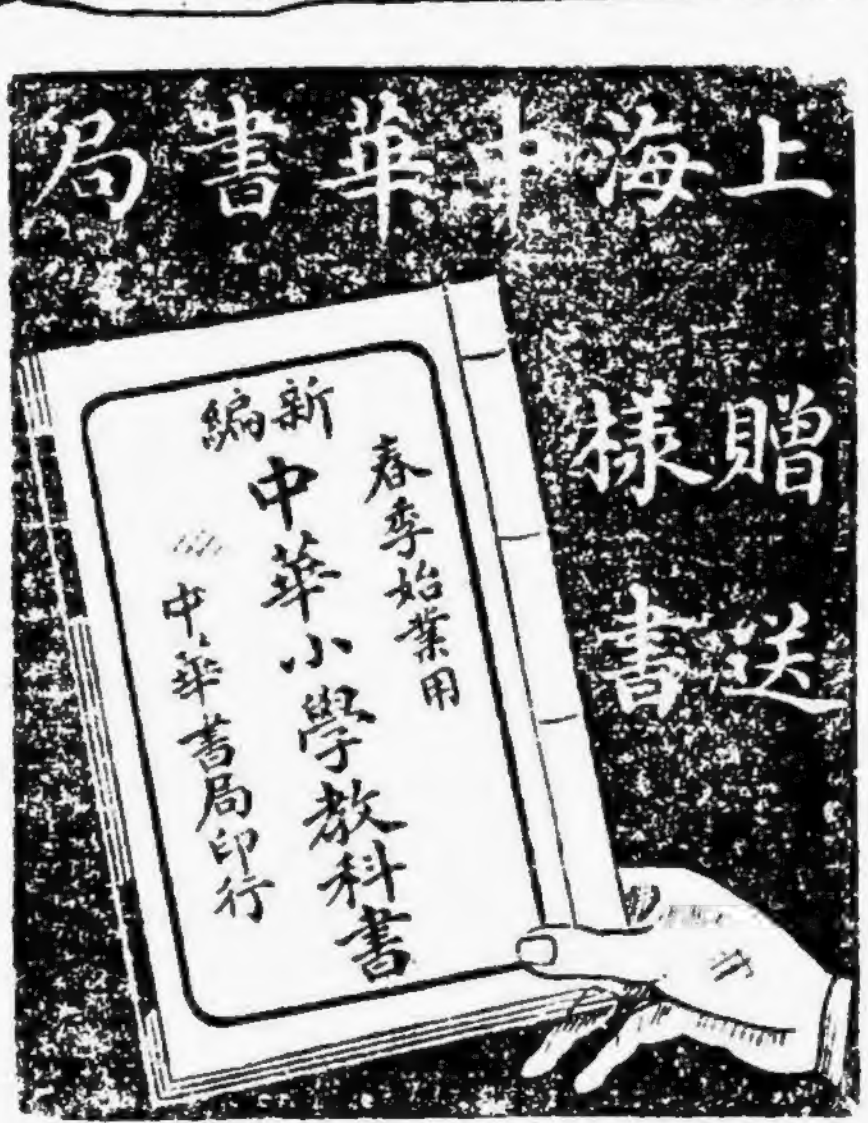 上海中華書局
贈送
樣書
春季始業用
新編
中華小學教科書
中華書局印行